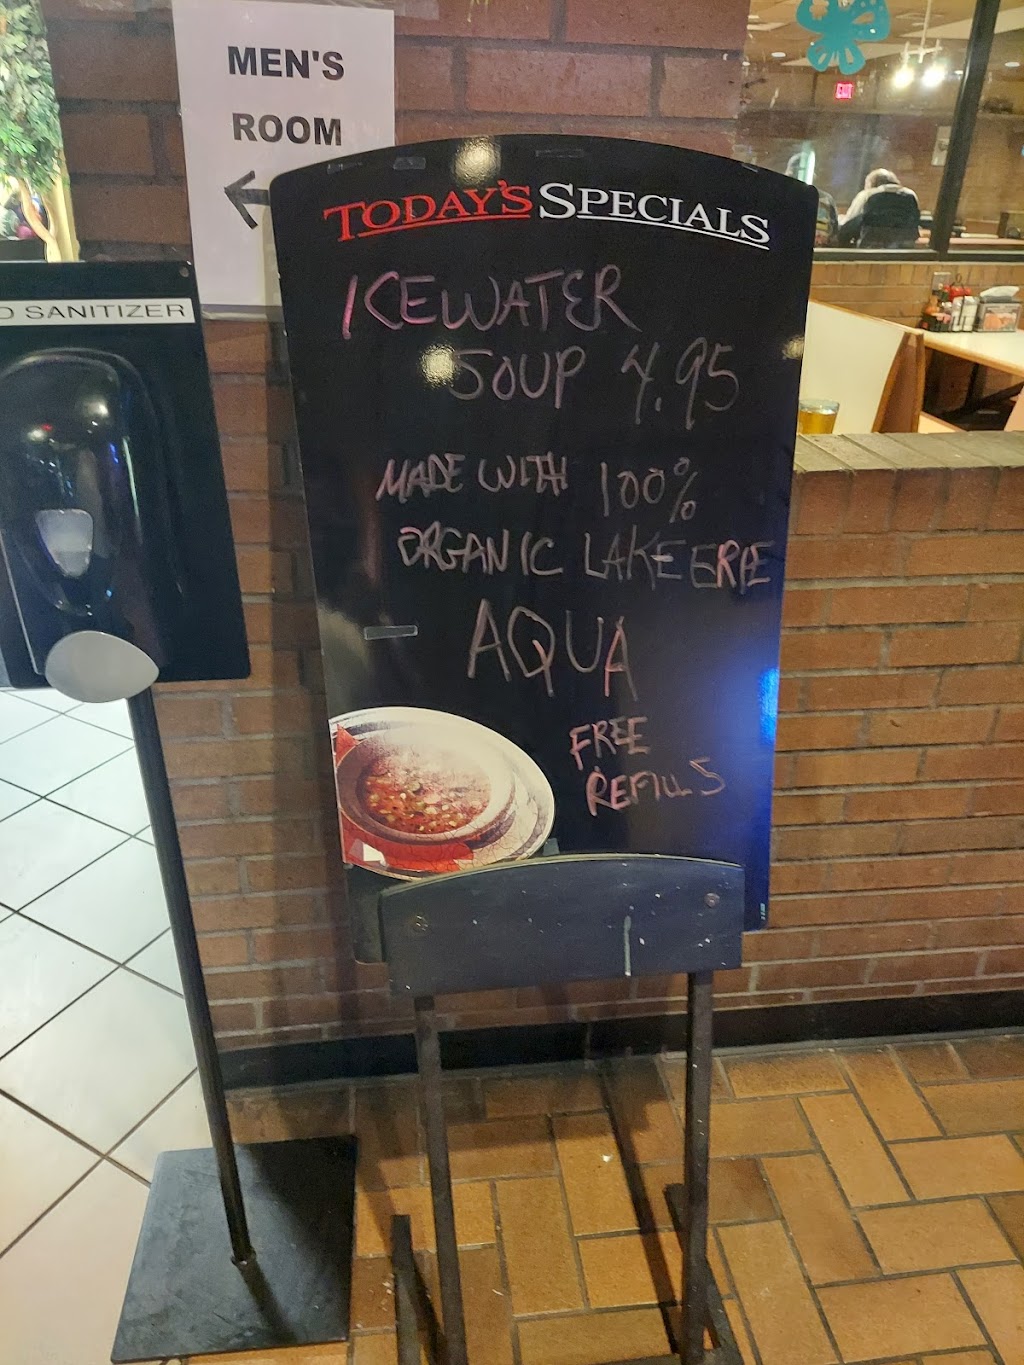 MEN'S
ROOM
TODAY'S SPECIALS
ICEWATER
SOUP 4.95
MADE WITH 100%
ORGANIC LAKE ERIE
AQUA
FREE
REFILLS
SANITIZER
EXIT